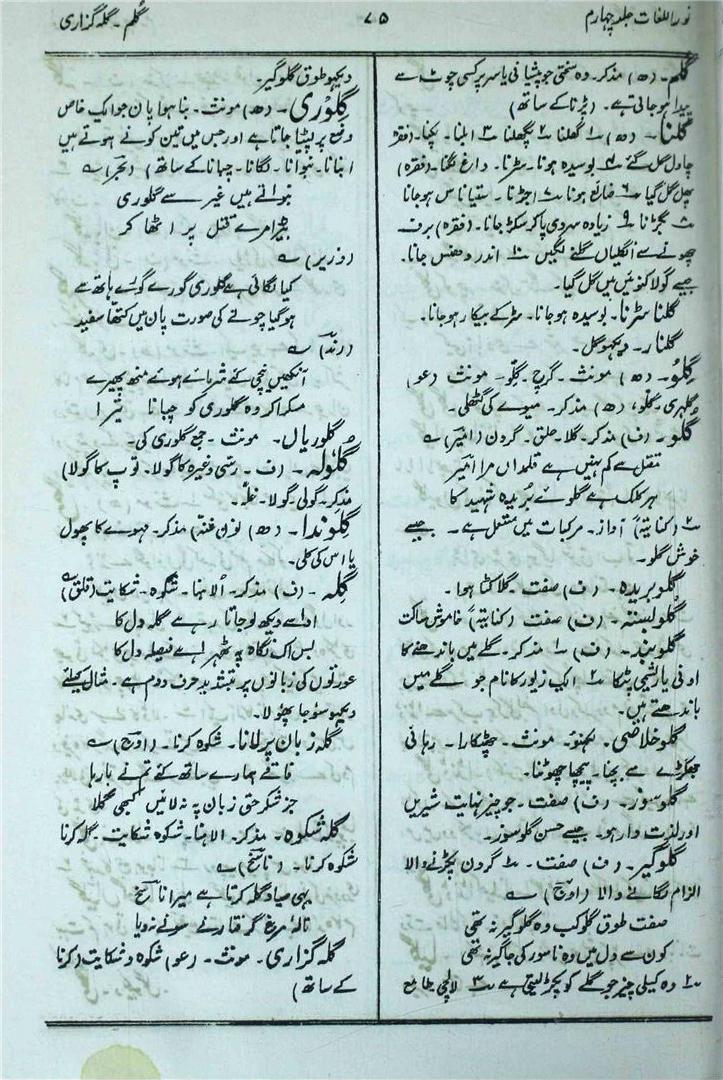 نور اللغات جلد چہارم
۷۵
گلم۔ گلہ گزاری
گلم۔ (ھ) مذکر۔ وہ سختی جو پیشانی یا سر پر کسی چوٹ سے
پیدا ہو جاتی ہے۔ (پڑنا کے ساتھ)
گلنا۔ (ھ) ۱ گھلنا ۲ پگھلنا ۳ ابلنا۔ پکنا۔ (فقرہ
چاول گل گئے ۴ بوسیدہ ہونا۔ سڑنا۔ داغ لگنا۔ (فقرہ)
پھل گل گیا ۶ ضائع ہونا ۷ اجڑنا۔ ستیاناس ہوجانا
۸ بگڑنا ۹ زیادہ سردی پا کر سکڑ جانا۔ (فقرہ) برف
چھونے سے انگلیاں گلنے لگیں ۱۰ اندر دھنس جانا۔
جیسے گولا کنوئیں میں گل گیا۔
گلنا سڑنا۔ بوسیدہ ہو جانا۔ سڑ کے بیکار ہو جانا۔
گلنار۔ دیکھو گل۔
گلو۔ (ھ) مونث۔ گرچ۔ گلّو۔ مونث (عو)
گلہری۔ گلّو، (ھ) مذکر۔ میوے کی گٹھلی۔
گلو۔ (ف) مذکر۔ گلا۔ حلق۔ گردن (امیر) ؎
مقتل سے کم نہیں ہے قلمداں مرا امیر
ہر کلک ہے گلوئے بریدہ شہید کا
۲ (کنایۃً) آواز۔ مرکبات میں مستعمل ہے۔ جیسے
خوش گلو۔
گلو بریدہ۔ (ف) صفت۔ گلا کٹا ہوا۔
گلو بستہ۔ (ف) صفت (کنایۃً) خاموش ساکت
گلو بند۔ (ف) ۱ مذکر۔ گلے میں باندھنے کا
اونی یا ریشمی پٹکا ۲ ایک زیور کا نام جو گلے میں
باندھتے ہیں۔
گلو خلاصی۔ لکھنؤ۔ مونث۔ چھٹکارا۔ رہائی
جھگڑے سے بچنا۔ پیچھا چھوٹنا۔
گلو سوز۔ (ف) صفت۔ جو چیز نہایت شیریں
اور لذت دار ہو۔ جیسے حسن گلو سوز۔
گلو گیر۔ (ف) صفت۔ ۱ گردن پکڑنے والا
الزام لگانے والا (اوج) ؎
صفت طوق گلو کب وہ گلو گیر نہ تھی
کون سے دل میں وہ ناسور کی جاگیر نہ تھی
۲ وہ کسیلی چیز جو گلے کو پکڑ لیتی ہے ۳ لالچی طامع
دیکھو طوق گلوگیر۔
گلوری۔ (ھ) مونث۔ بنا ہوا پان جو ایک خاص
وضع پر لپیٹا جاتا ہے اور جس میں تین کونے ہوتے ہیں
(بنانا۔ بنوانا۔ لگانا۔ چبانا کے ساتھ) (بحر) ؎
بنواتے ہیں غیر سے گلوری
بیڑا مرے قتل پر اٹھا کر
(وزیر) ؎
کیا لگائی ہے گلوری گورے گورے ہاتھ سے
ہو گیا چونے کی صورت پان میں کتھا سفید
(رند) ؎
آنکھیں نیچی کئے شرمائے ہوئے منھ پھیرے
مسکرا کر وہ گلوری کو چبانا تیرا
گلوریاں۔ مونث۔ جمع گلوری کی۔
گلولہ۔ (ف۔ رسّی وغیرہ کا گولا۔ توپ کا گولا)
مذکر۔ گولی۔ گولا۔ غلّہ۔
گلوندا۔ (ھ) نون غنہ) مذکر۔ مہوے کا پھول
یا اس کی کلی۔
گلہ۔ (ف) مذکر۔ الاہنا۔ شکوہ۔ شکایت (قلق) ؎
ادا سے دیکھ لو جاتا رہے گلہ دل کا
بس اک نگاہ پہ ٹھہرا ہے فیصلہ دل کا
عورتوں کی زبانوں پر بتشدید حرف دوم ہے۔ مثال کیلئے
دیکھو سوجا پھولا۔
گلہ زبان پر لانا۔ شکوہ کرنا۔ (اوج) ؎
فاقے ہمارے ساتھ کئے تم نے بارہا
جز شکر حق زبان پہ نہ لائیں کبھی گلا
گلہ شکوہ۔ مذکر۔ الاہنا۔ شکوہ شکایت۔ گلہ کرنا
شکوہ کرنا۔ (ناسخ) ؎
یہی صیاد گلہ کرتا ہے میرا ناسخ
نالۂ مرغ گرفتار نے سونے نہ دیا
گلہ گزاری۔ مونث۔ (عو) شکوہ و شکایت (کرنا
کے ساتھ)